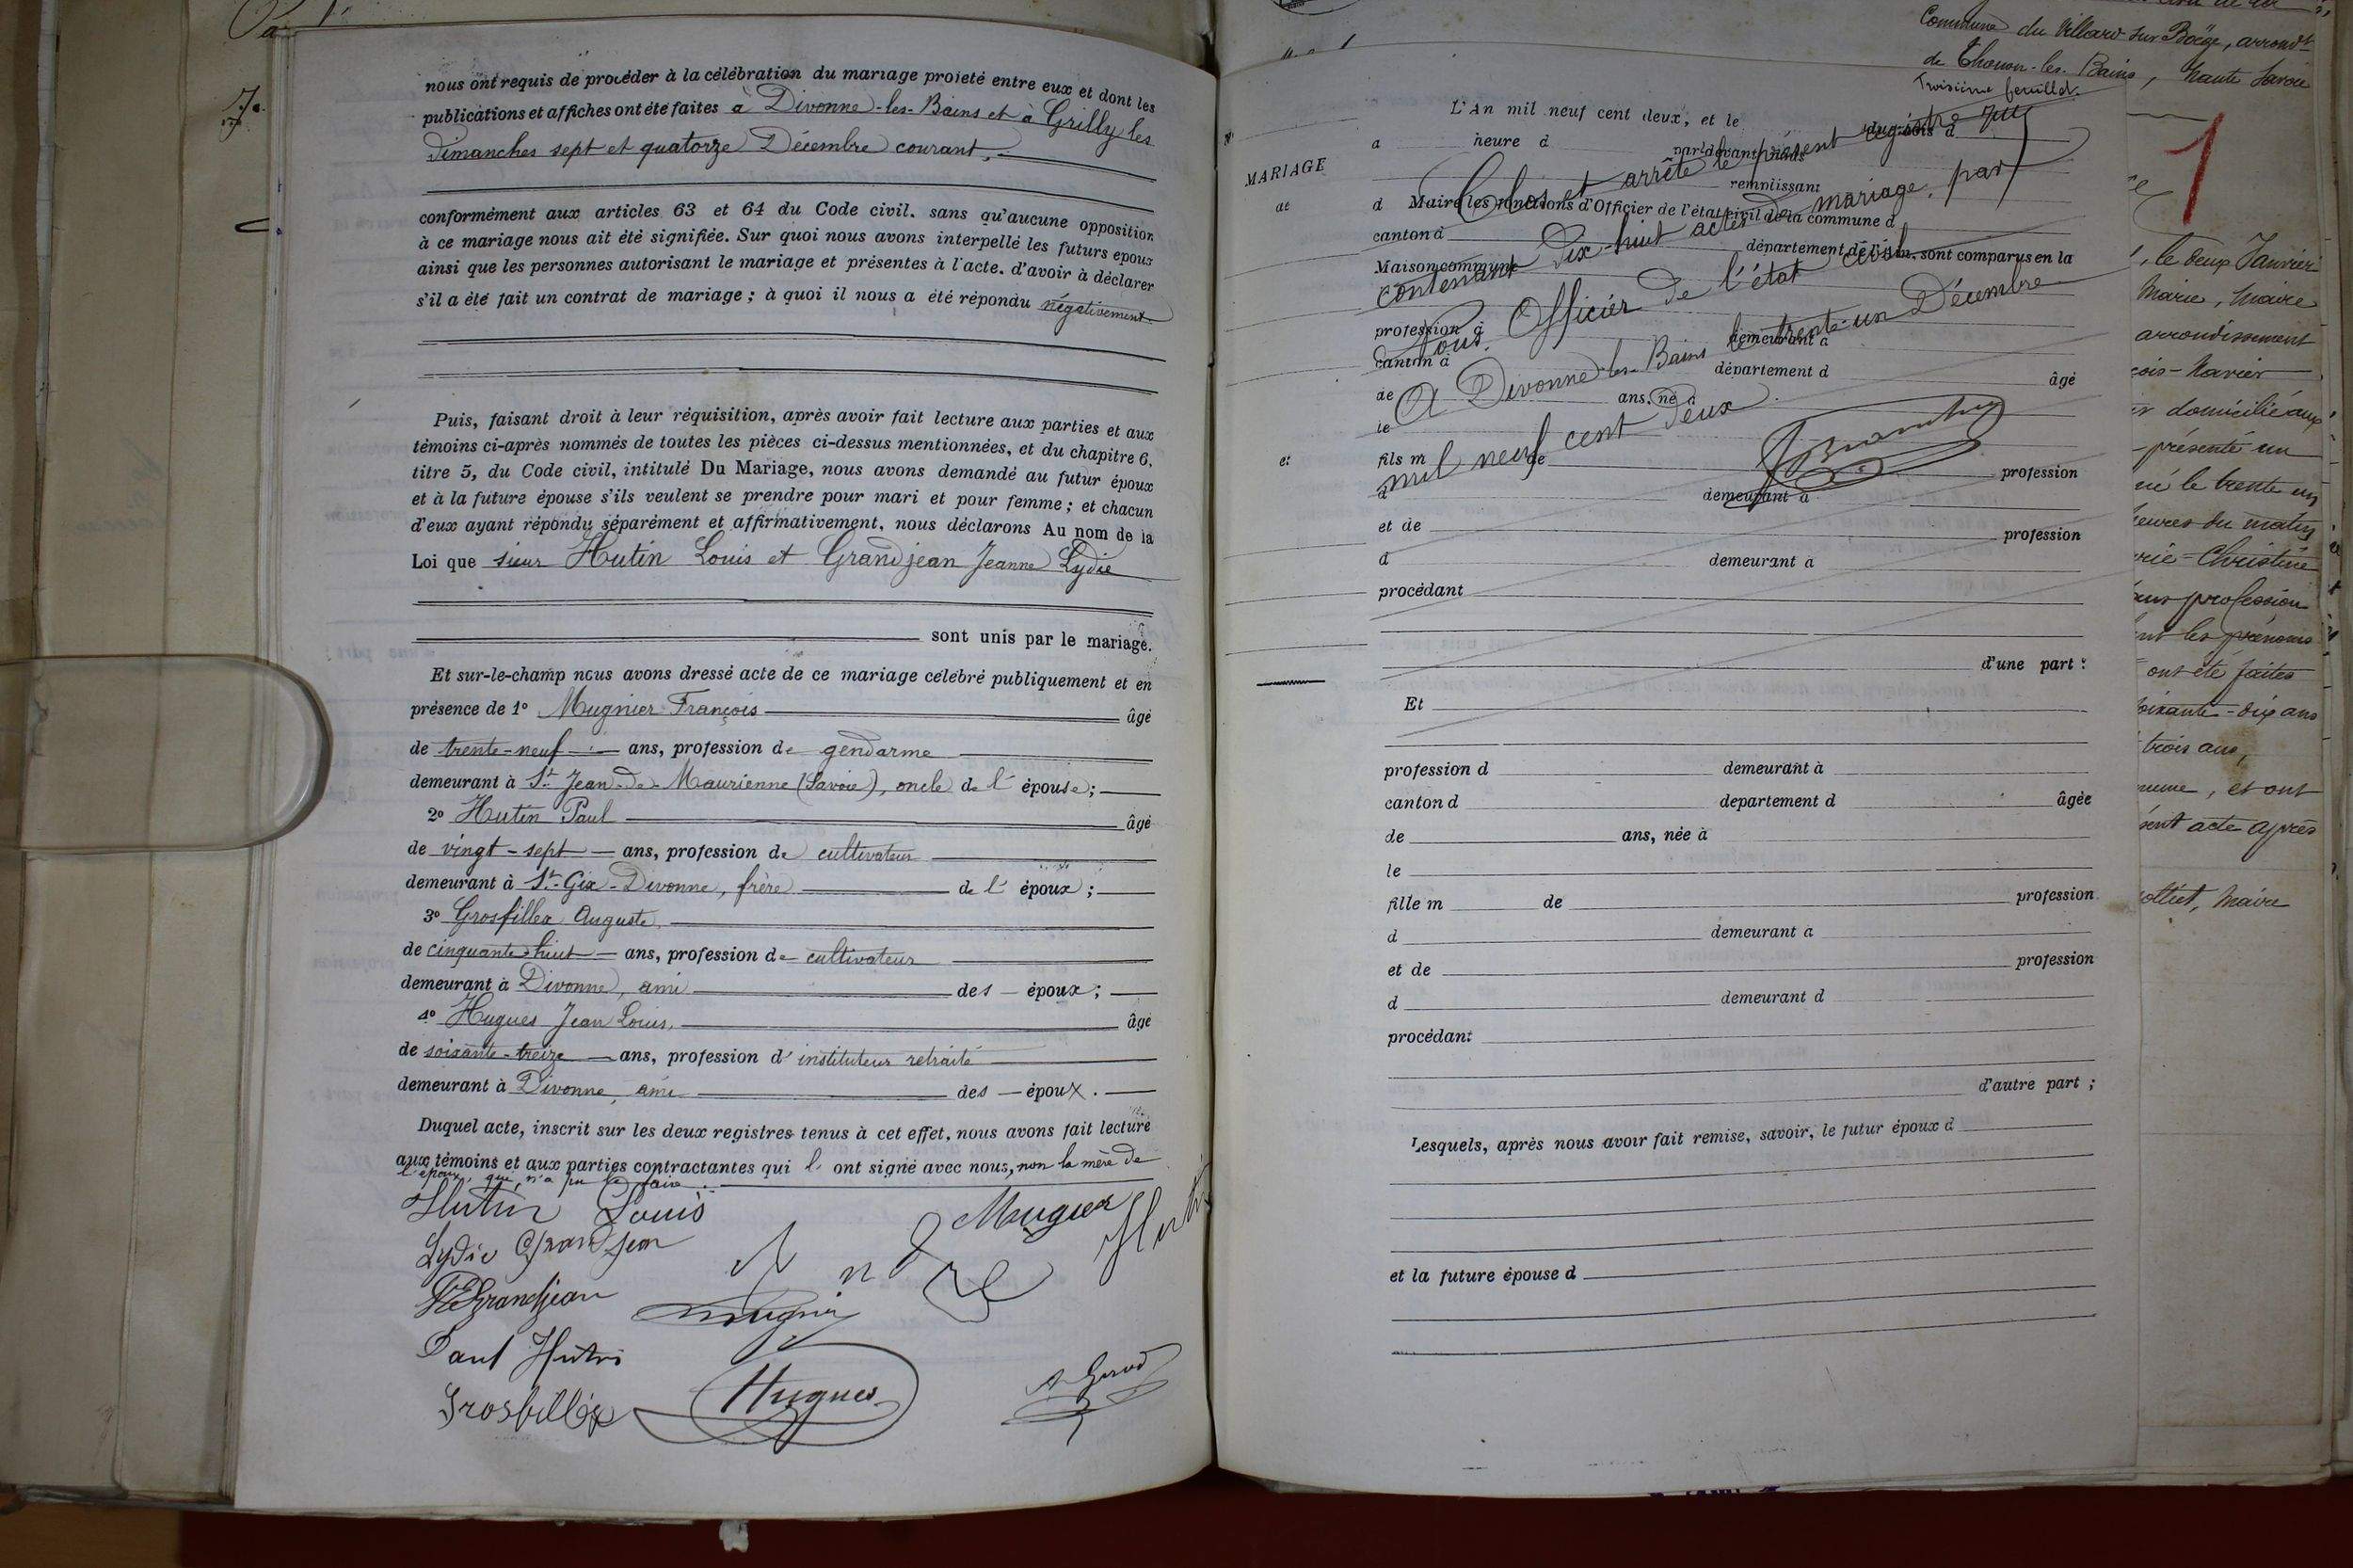 nous ont requis de procéder à la célébration du mariage projeté entre eux et dont les
publications et affiches ont été faites à Divonne-les-Bains et à Grilly les
Dimanches sept et quatorze Décembre courant,
conformément aux articles 63 et 64 du Code civil. sans qu'aucune opposition
à ce mariage nous ait été signifiée. Sur quoi nous avons interpellé les futurs époux
ainsi que les personnes autorisant le mariage et présentes à l'acte. d'avoir à déclarer
s'il a été fait un contrat de mariage ; à quoi il nous a été répondu négativement
Puis, faisant droit à leur réquisition, après avoir fait lecture aux parties et aux
témoins ci-après nommés de toutes les pièces ci-dessus mentionnées, et du chapitre 6,
titre 5, du Code civil, intitulé Du Mariage, nous avons demandé au futur époux
et à la future épouse s'ils veulent se prendre pour mari et pour femme ; et chacun
d'eux ayant répondu séparément et affirmativement, nous déclarons Au nom de la
Loi que sieur Hutin Louis et Grandjean Jeanne Lydie
sont unis par le mariage.
Et sur-le-champ nous avons dressé acte de ce mariage célébré publiquement et en
présence de 1° Mugnier François âgé
de trente-neuf ans, profession de gendarme
demeurant à St Jean-de-Maurienne (Savoie), oncle de l' épouse ;
2° Hutin Paul âgé
de vingt-sept ans, profession de cultivateur
demeurant à St-Gix-Divonne, frère de l' époux ;
3° Grosfillex Auguste,
de cinquante huit ans, profession de cultivateur
demeurant à Divonne, ami des époux ;
4° Hugues Jean Louis, âgé
de soixante-treize ans, profession d' instituteur retraité
demeurant à Divonne, ami des époux.
Duquel acte, inscrit sur les deux registres tenus à cet effet, nous avons fait lecture
aux témoins et aux parties contractantes qui l' ont signé avec nous, non la mère de
l'époux, qui n'a pu le faire.
Hutin Louis
Mugnier
Lydie Grandjean
Grandjean
Mugnier
Paul Hutin
Grosfillex
Hugues
Commune du Villard sur Boëge, arrondt
de Thonon-les-Bains, haute Savoie
Troisième feuillet.
L'An mil neuf cent deux, et le du mois d
a heure d par devant nous
MARIAGE
de
d Maire remplissant
les fonctions d'Officier de l'état civil de la commune d
canton d département de l'Ain. sont comparus en la
Maison commune
Clos et arrêté le présent registre
contenant Dix-huit actes de mariage, par
Nous, Officier de l'état civil.
A Divonne-les-Bains le trente-un Décembre
mil neuf cent deux.
profession d demeurant à
canton d département d âgé
de ans, né à
le
et
fils m de profession
d demeurant à
et de profession
d demeurant à
procédant
d'une part :
Et
profession d demeurant à
canton d département d âgée
de ans, née à
le
fille m de profession
d demeurant à
et de profession
d demeurant d
procédant
d'autre part ;
Lesquels, après nous avoir fait remise, savoir, le futur époux d
et la future épouse d
1
, le deux Janvier
Marie, Maire
arrondissement
domicilié aux
présenté un
né le trente un
heures du matin
Christine
profession
les prénoms
ont été faites
soixante-dix ans
trois ans,
, et ont
acte après
, Maire